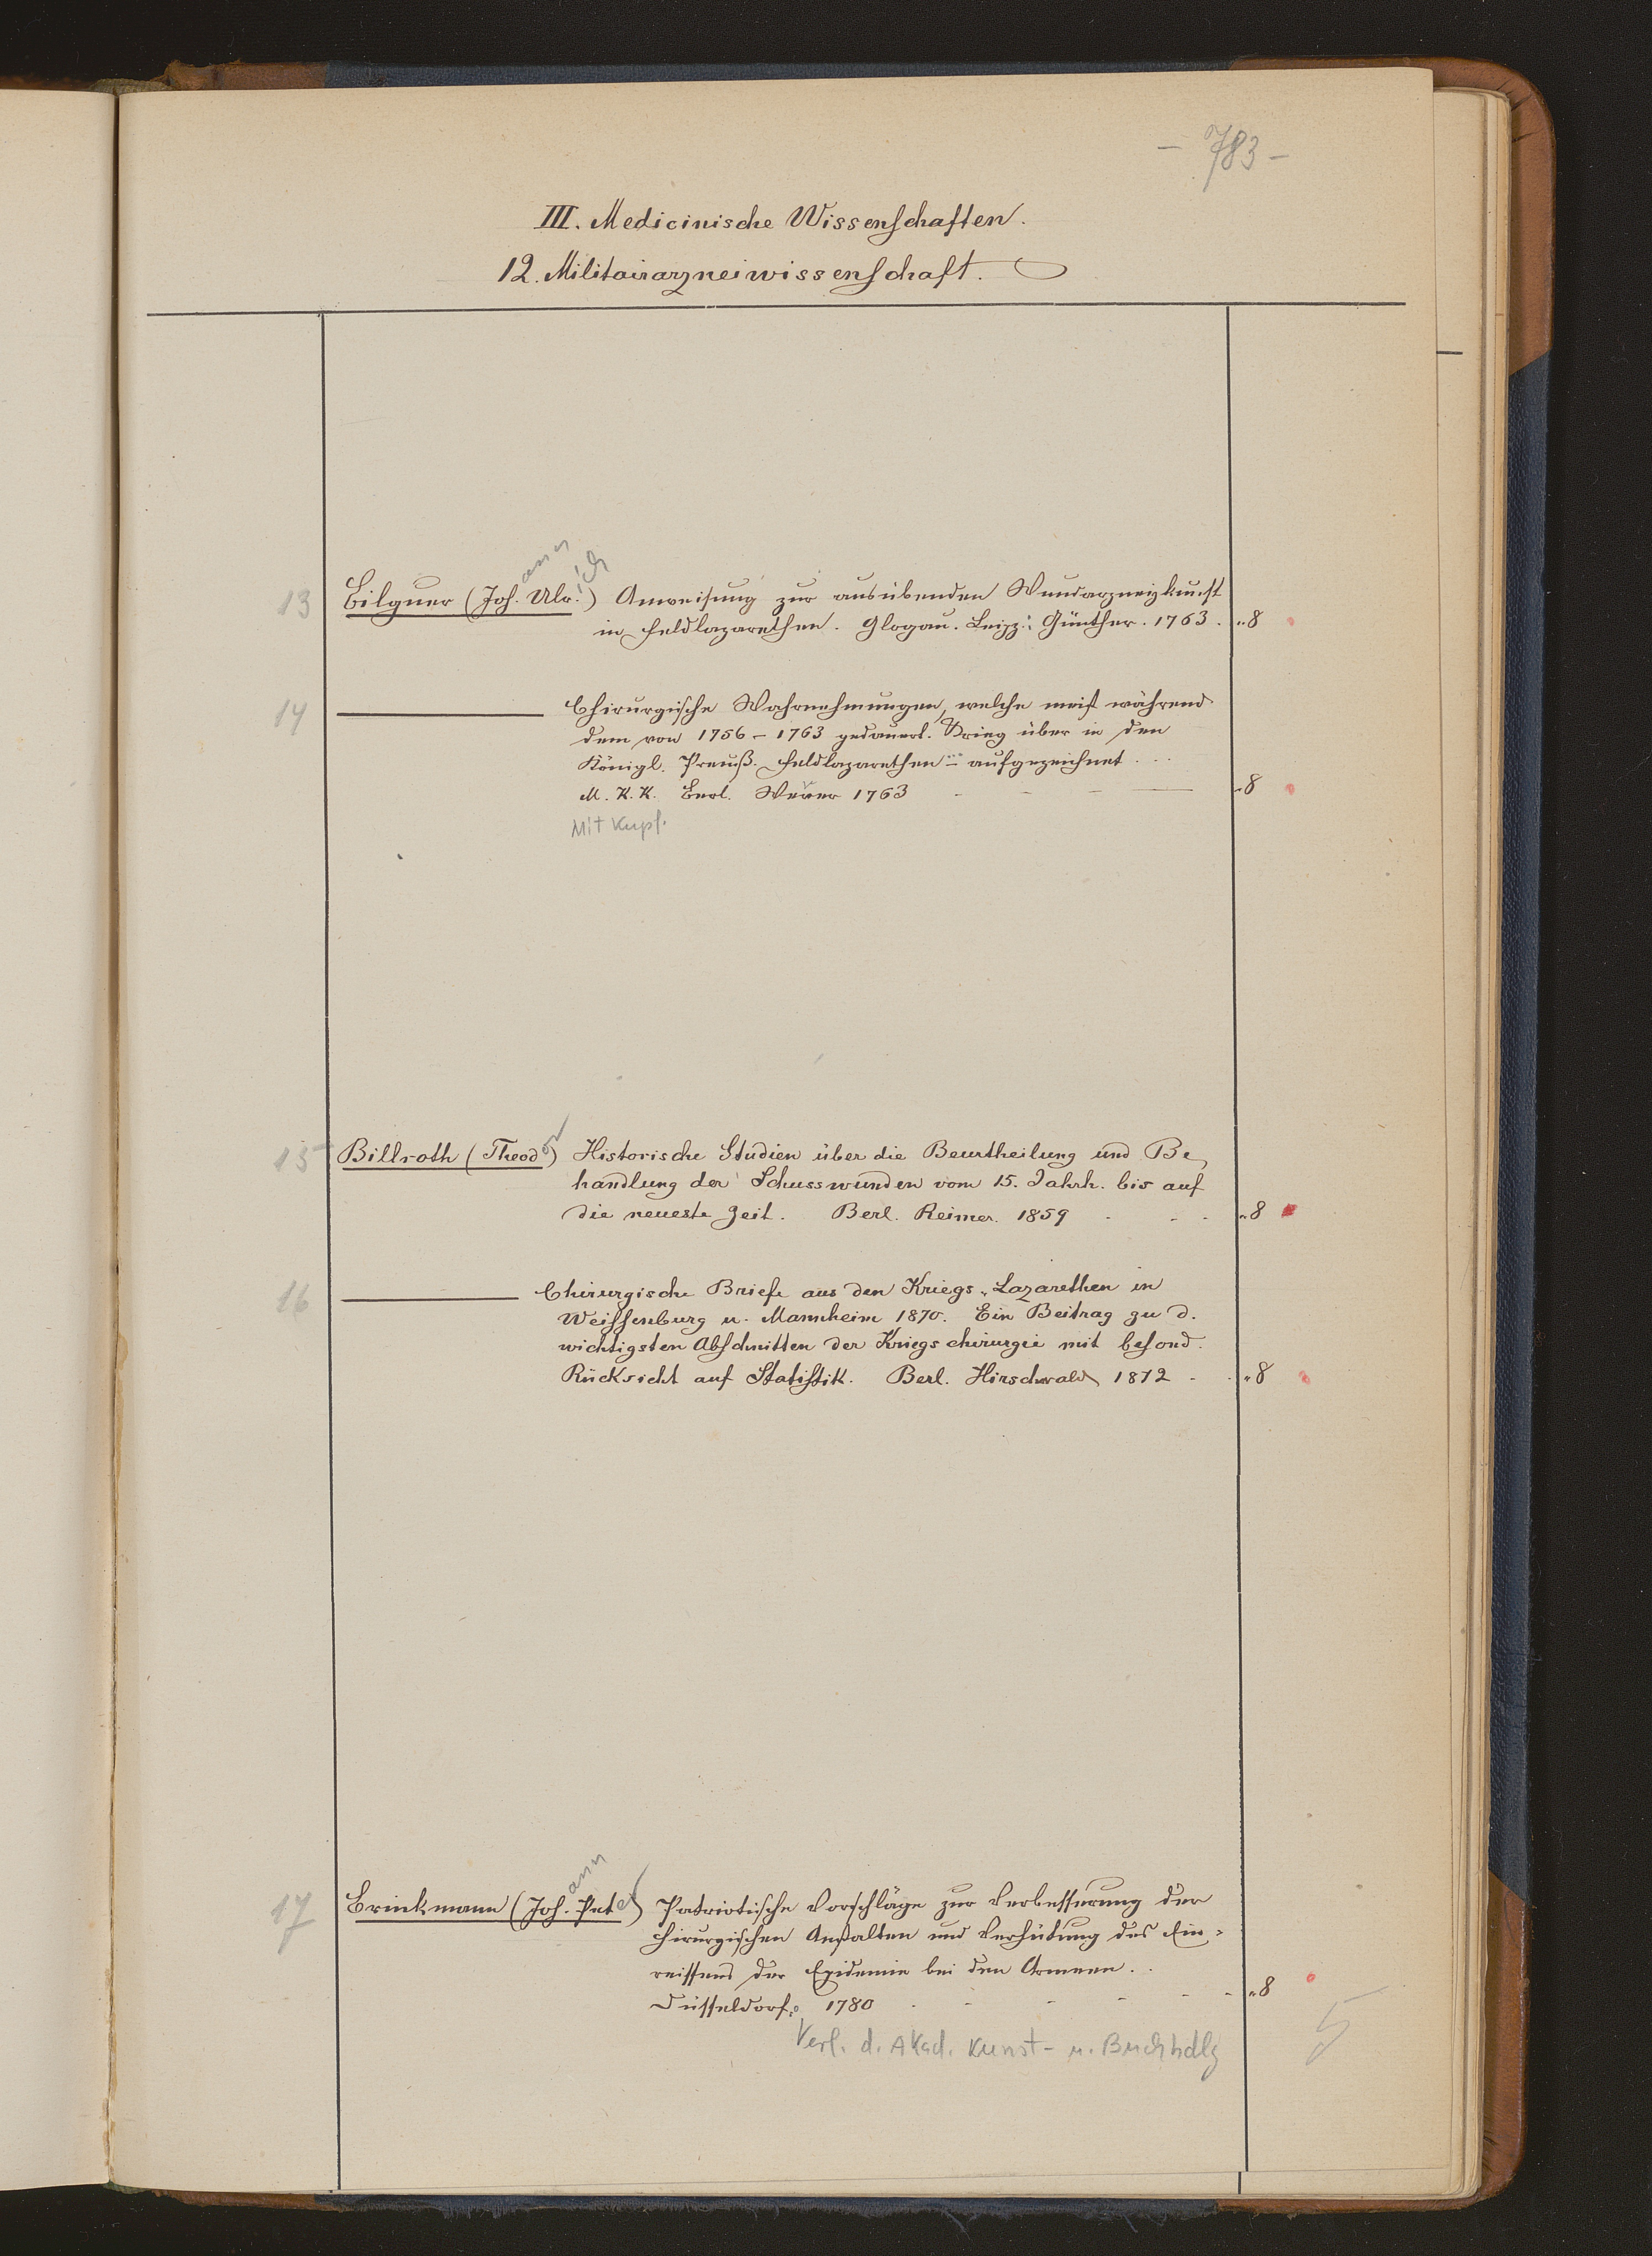 - 783 -
III. Medicinische Wissenschaften.
12. Militairarzneiwissenschaft.
13 Bilguer (Johann Ulrich) Anweisung zur ausübenden Wundarzneykunst
in Feldlazarethen. Glogau. Leipz.: Günther. 1763. „8
14 ——— Chirurgische Wahrnehmungen, welche meist während
dem von 1756-1763 gedauert. Krieg über in den
Königl. Preuß. Feldlazarethen - aufgezeichnet ...
M. K. K. Berl. Wever 1763 - - - „8
Mit Kupf.
15 Billroth (Theodor) Historische Studien über die Beurtheilung und Be,
handlung der Schusswunden vom 15. Jahrh. bis auf
die neueste Zeit. Berl. Reimer. 1859 - - - „8
16 ——— Chirurgische Briefe aus den Kriegs-Lazarethen in
Weissenburg u. Mannheim 1870. Ein Beitrag zu d.
wichtigsten Abschnitten der Kriegschirurgie mit besond.
Rücksicht auf Statistik. Berl. Hirschwald 1872 - - „8
17 Brinkmann (Johann Peter) Patriotische Vorschläge zur Verbesserung der
chirurgischen Anstalten und Verhütung des Ein-
reissens der Epidemie bei den Armeen..
Düsseldorf: 1780 - - - - - „8
Verl. d. Akad. Kunst- u. Buchhdlg
5